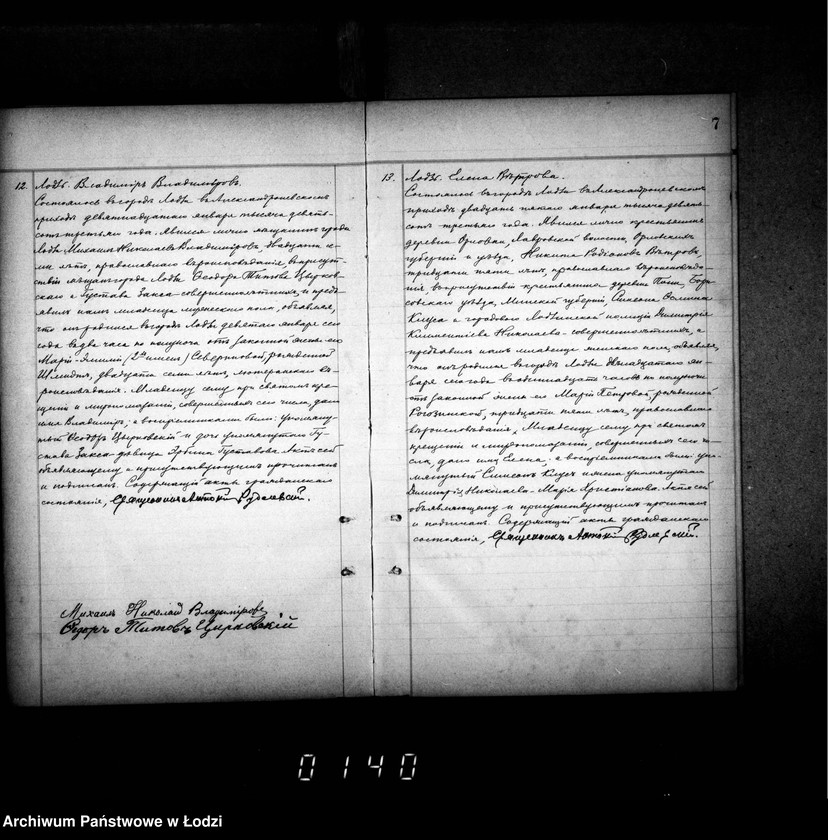 7
12. Лодзь. Владиміръ Владиміровъ.
Состоялось въ городѣ Лодзи въ Александроневскомъ
приходѣ девятнадцатаго января тысяча девять-
сотъ третьяго года. Явился лично мѣщанинъ города
Лодзи Михаилъ Николаевъ Владиміровъ, двадцати се-
ми лѣтъ, православнаго вѣроисповѣданія, въ присут-
ствіи мѣщанъ города Лодзи Ѳеодора Титова Цырков-
скаго и Густава Закса совершеннолѣтнихъ, и предъ-
явилъ намъ младенца мужескаго пола, объявляя,
что онъ родился въ городѣ Лодзи девятаго января сего
года въ два часа по полуночи отъ законной жены его
Маріи-Эмиліи /2ˣ именъ/ Севериновой, рожденной
Шмидтъ, двадцати семи лѣтъ, лютеранскаго вѣ-
роисповѣданія. Младенцу сему при святомъ кре-
щеніи и миропомазаніи, совершенныхъ сего числа, дано
имя Владиміръ, а воспріемниками были: упомяну-
тый Ѳеодоръ Цырковскій и дочь упомянутаго Гу-
става Закса дѣвица Густавова. Актъ сей
объявляющему и присутствующимъ прочитанъ
и подписанъ. Содержащій акты гражданскаго
состоянія, Священникъ Антоній Рудлевскій.
Михаилъ Николай Владиміровъ
Ѳедоръ Титовъ Цирковскій
13. Лодзь. Елена Вѣтрова.
Состоялось въ городѣ Лодзи въ Александроневскомъ
приходѣ двадцать пятаго января тысяча девять-
сотъ третьяго года. Явился лично крестьянинъ
деревни Орловки, Лавровской волости, Орловской
губерніи и уѣзда, Никита Родіоновъ Вѣтровъ,
тридцати пяти лѣтъ, православнаго вѣроисповѣда-
нія въ присутствіи крестьянина деревни Бори-
совскаго уѣзда, Минской губерніи, Симеона
Клуса и городового Лодзинской полиціи Димитрія
Климентіева Николаева - совершеннолѣтнихъ, и
представилъ намъ младенца женскаго пола, объявляя,
что онъ родился въ городѣ Лодзи двѣнадцатаго ян-
варя сего года въ одиннадцать часовъ по полуночи
отъ законной жены его Маріи Петровой, рожденной
Рогозинской, тридцати пяти лѣтъ, православнаго
вѣроисповѣданія. Младенцу сему при святомъ
крещеніи и миропомазаніи, совершенныхъ сего чи-
сла, дано имя Елена, а воспріемниками были: упо-
мянутый Симеонъ Клусъ и жена упомянутаго
Димитрія Николаева - Марія Христіанова. Актъ сей
объявляющему и присутствующимъ прочитанъ
и подписанъ. Содержащій акты гражданскаго
состоянія, Священникъ Антоній Рудлевскій.
0140
Archiwum Państwowe w Łodzi